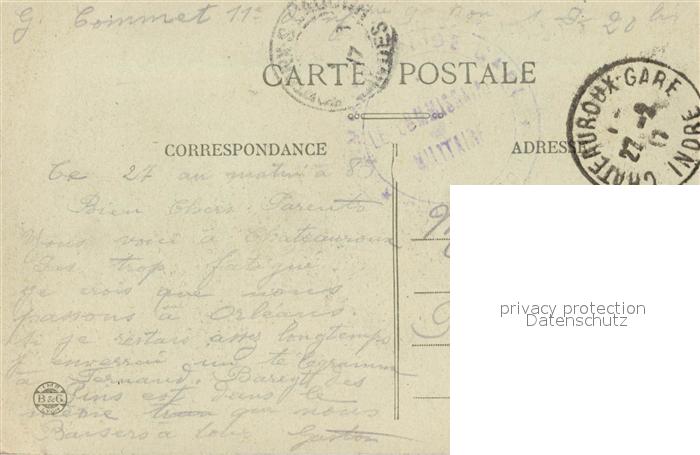 G. Commet 11e
CARTE POSTALE
CORRESPONDANCE
ADRESSE
CHATEAUROUX-GARE INDRE
27-2
17
LE COMMISSAIRE
MILITAIRE
Ce 27 au matin à 8h
Bien Chers Parents
Nous voici à Chateauroux
Pas trop fatigué.
je crois que nous
passons à Orléans.
si je restais assez longtemps
j enverrai un telegramme
à Fernand. des
Pins est dans le
même train que nous
Baisers à tous Gaston
IMP. B&G LYON
privacy protection
Datenschutz